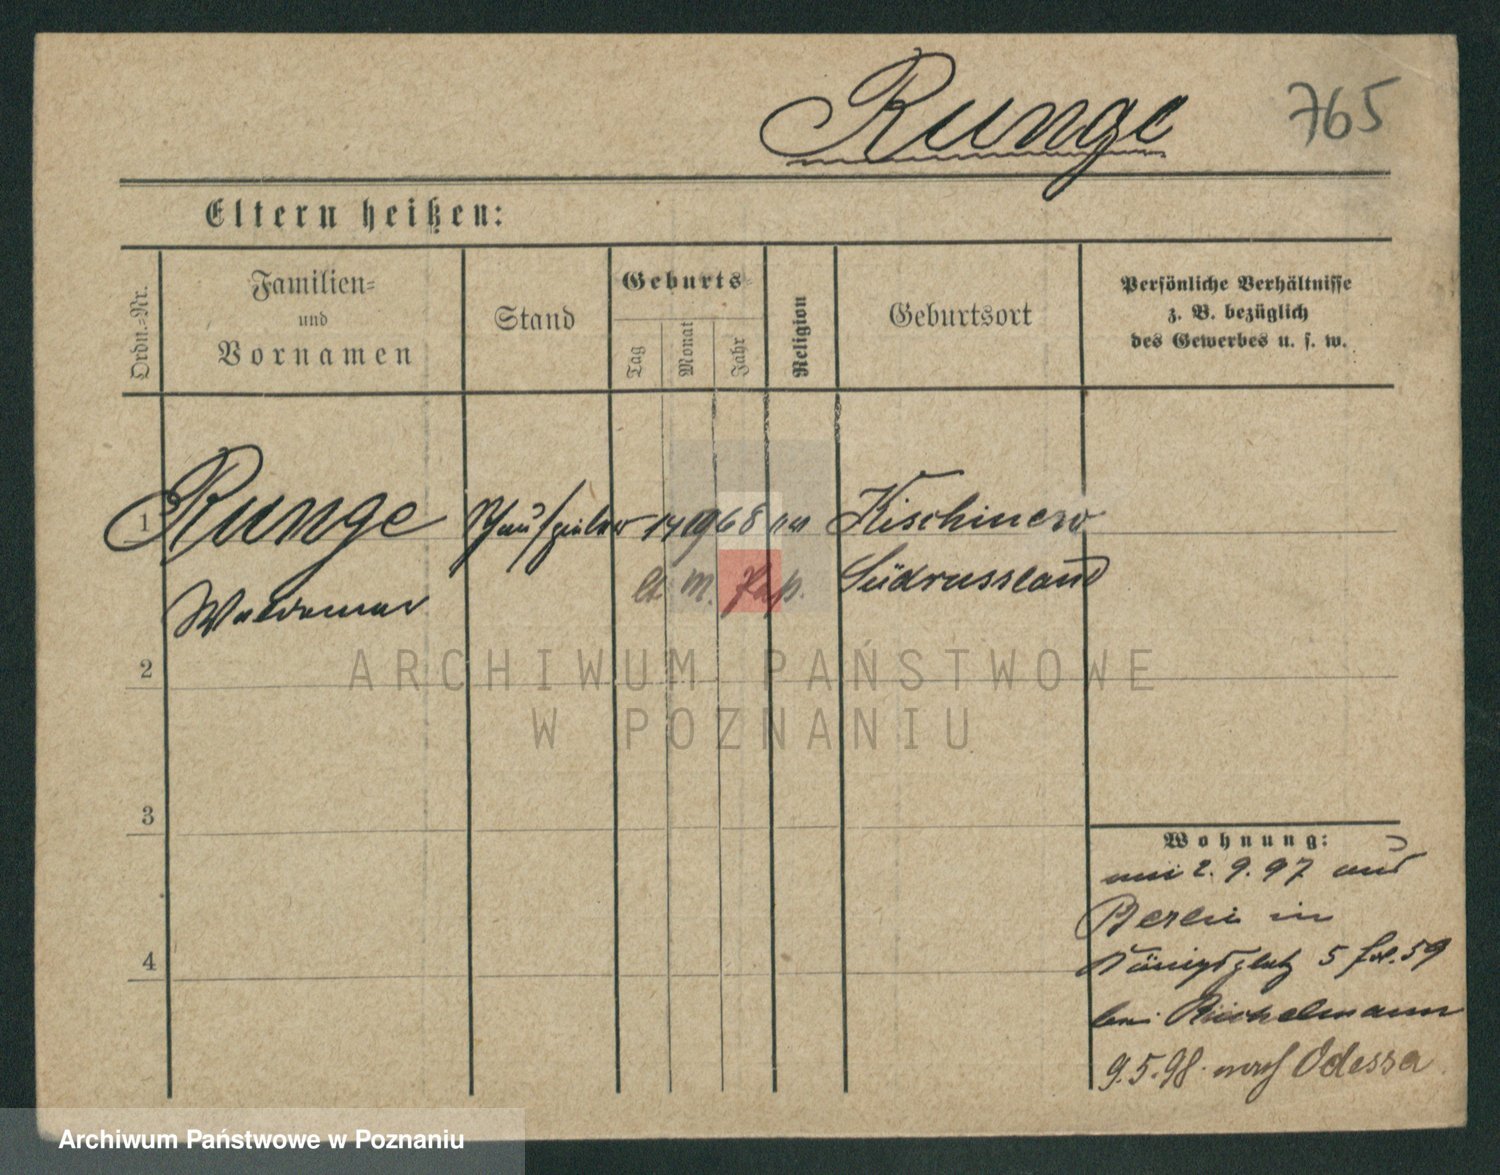 Runge 765
Eltern heißen:
Ordn.=Nr.
Familien=
und
Vornamen
Stand
Geburts=
Tag
Monat
Jahr
Religion
Geburtsort
Persönliche Verhältnisse
z. B. bezüglich
des Gewerbes u. s. w.
1 Runge Schauspieler 14 68 Kischinew
Waldemar Südrussland
2
3
4
Wohnung:
2.9.97 aus
Berlin in
Königsplatz 5 59
bei
9.5.98. nach Odessa
ARCHIWUM PAŃSTWOWE
W POZNANIU
Archiwum Państwowe w Poznaniu